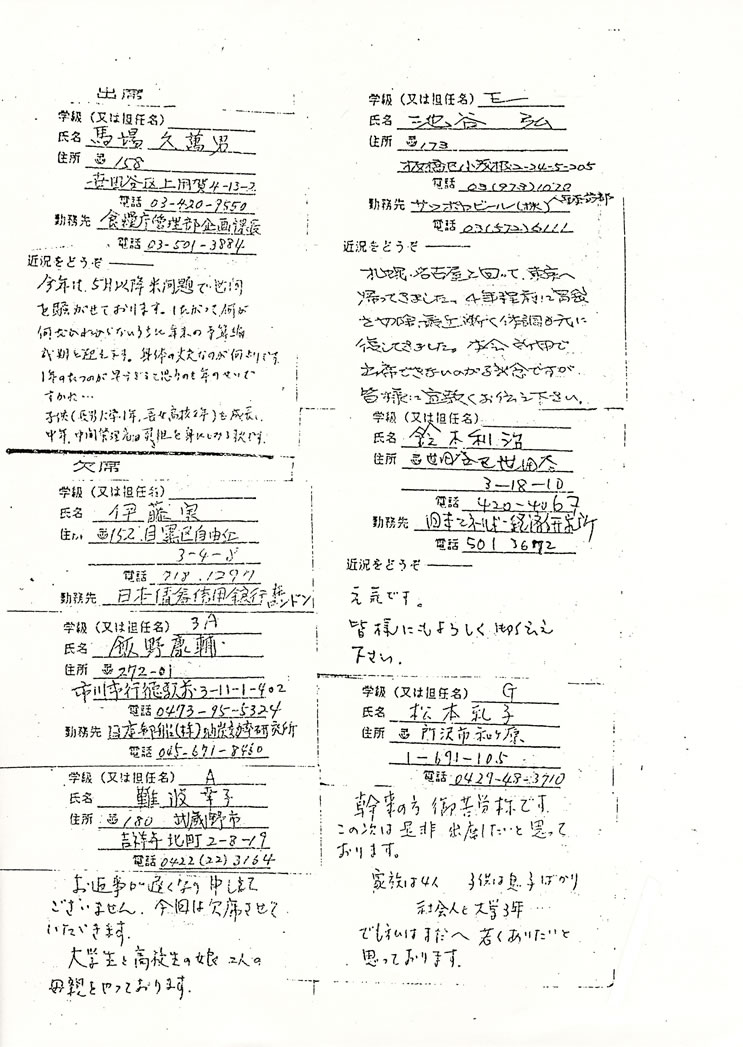 出席
学級（又は担任名）
氏名 馬場 久萬男
住所 〒158
世田谷区上用賀4-13-2
電話 03-420-9550
勤務先 食糧庁管理部企画課長
電話 03-501-3884
近況をどうぞ
今年は、5月以降米問題で世間
を騒がせております。したがって何が
何だかわからないうちに年末の予算編
成期を迎えます。身体の丈夫なのが何よりです。
1年のたつのが早すぎると思うのも年のせいで
すかネ…
子供(長男大学1年、長女高校2年)も成長し、
中年、中間管理
欠席
学級（又は担任名）
氏名 伊藤 実
住所 〒152 目黒区自由ヶ丘
3-4-8
電話 718.1297
勤務先 日本債券信用銀行 ロンドン
学級（又は担任名） 3A
氏名 飯野 慶輔
住所 〒272-01
市川市行徳駅前3-11-1-402
電話 0473-95-5324
勤務先 日産車体(株)
電話 045-671-8460
学級（又は担任名） A
氏名 難波 幸子
住所 〒180 武蔵野市
吉祥寺北町2-8-19
電話 0422(22)3164
お返事が遅くなり申し訳
ございません。今回は欠席させて
いただきます。
大学生と高校生の娘2人の
母親をやっております。
学級（又は担任名） E
氏名 池谷 弘
住所 〒173
板橋区小茂根2-24-5-205
電話 03(973)1020
勤務先 サッポロビール(株)
電話 03(572)6111
近況をどうぞ
札幌、名古屋と回って、東京へ
帰ってきました。4年程前に胃袋
を切除、最近漸く体調も元に
復してきました。本会
出席できないのが残念ですが
皆様に宜敷くお伝え下さい。
学級（又は担任名）
氏名 鈴木利治
住所 〒世田谷区世田谷
3-18-10
電話 420-4067
勤務先 日本エネルギー経済研究所
電話 501 3672
近況をどうぞ
元気です。
皆様にもよろしく御伝え
下さい。
学級（又は担任名） G
氏名 松本 礼子
住所 〒 所沢市和ヶ原
1-691-105
電話 0429-48-3710
幹事の方 御苦労様です。
この次は是非 出席したいと思って
おります。
家族は4人 子供は息子ばかり
社会人と大学3年…
でも私はまだへ 若くありたいと
思っております。